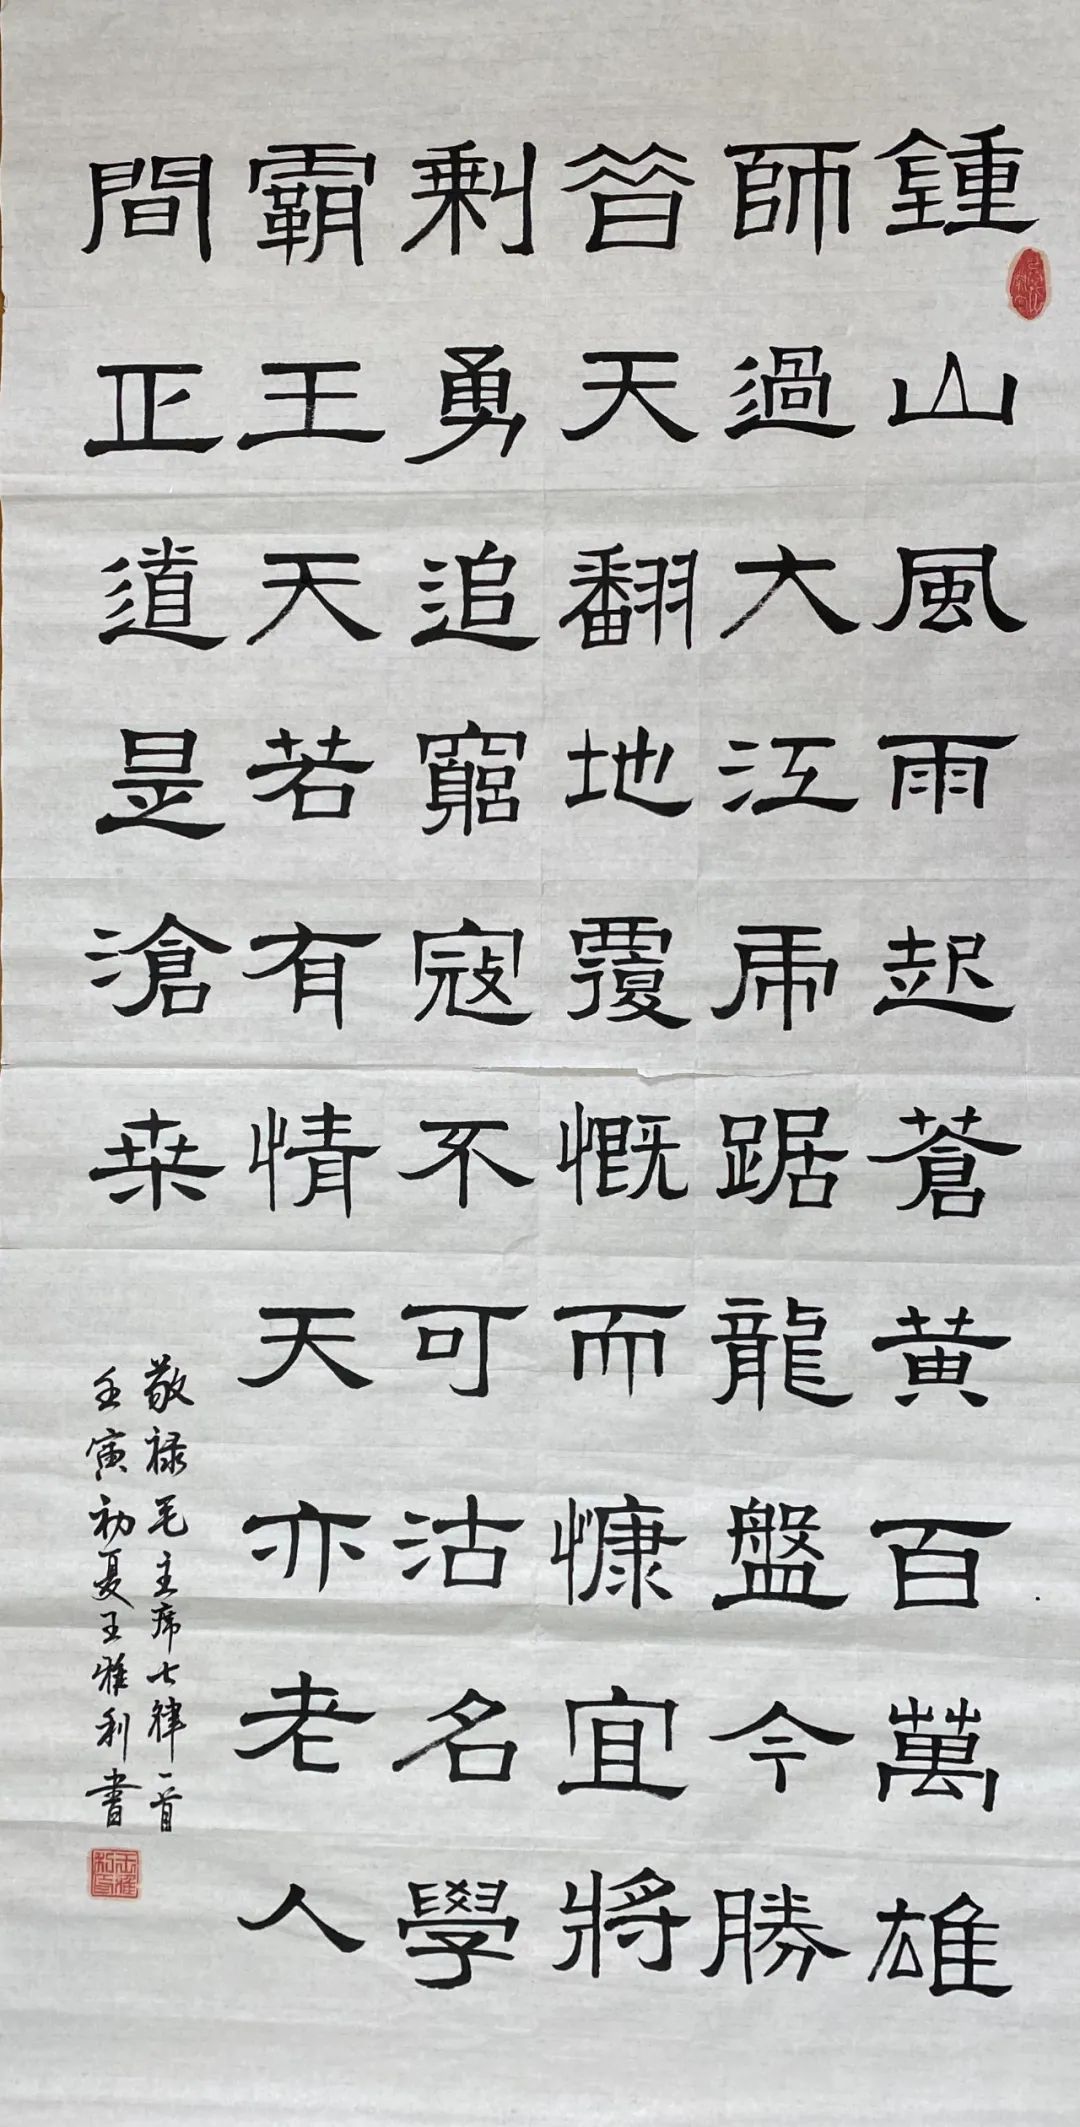 鍾山風雨起蒼黃百萬雄
師過大江虎踞龍盤今勝
昔天翻地覆慨而慷宜將
剩勇追窮寇不可沽名學
霸王天若有情天亦老人
間正道是滄桒
敬禄毛主席七律一首
壬寅初夏王雅利書